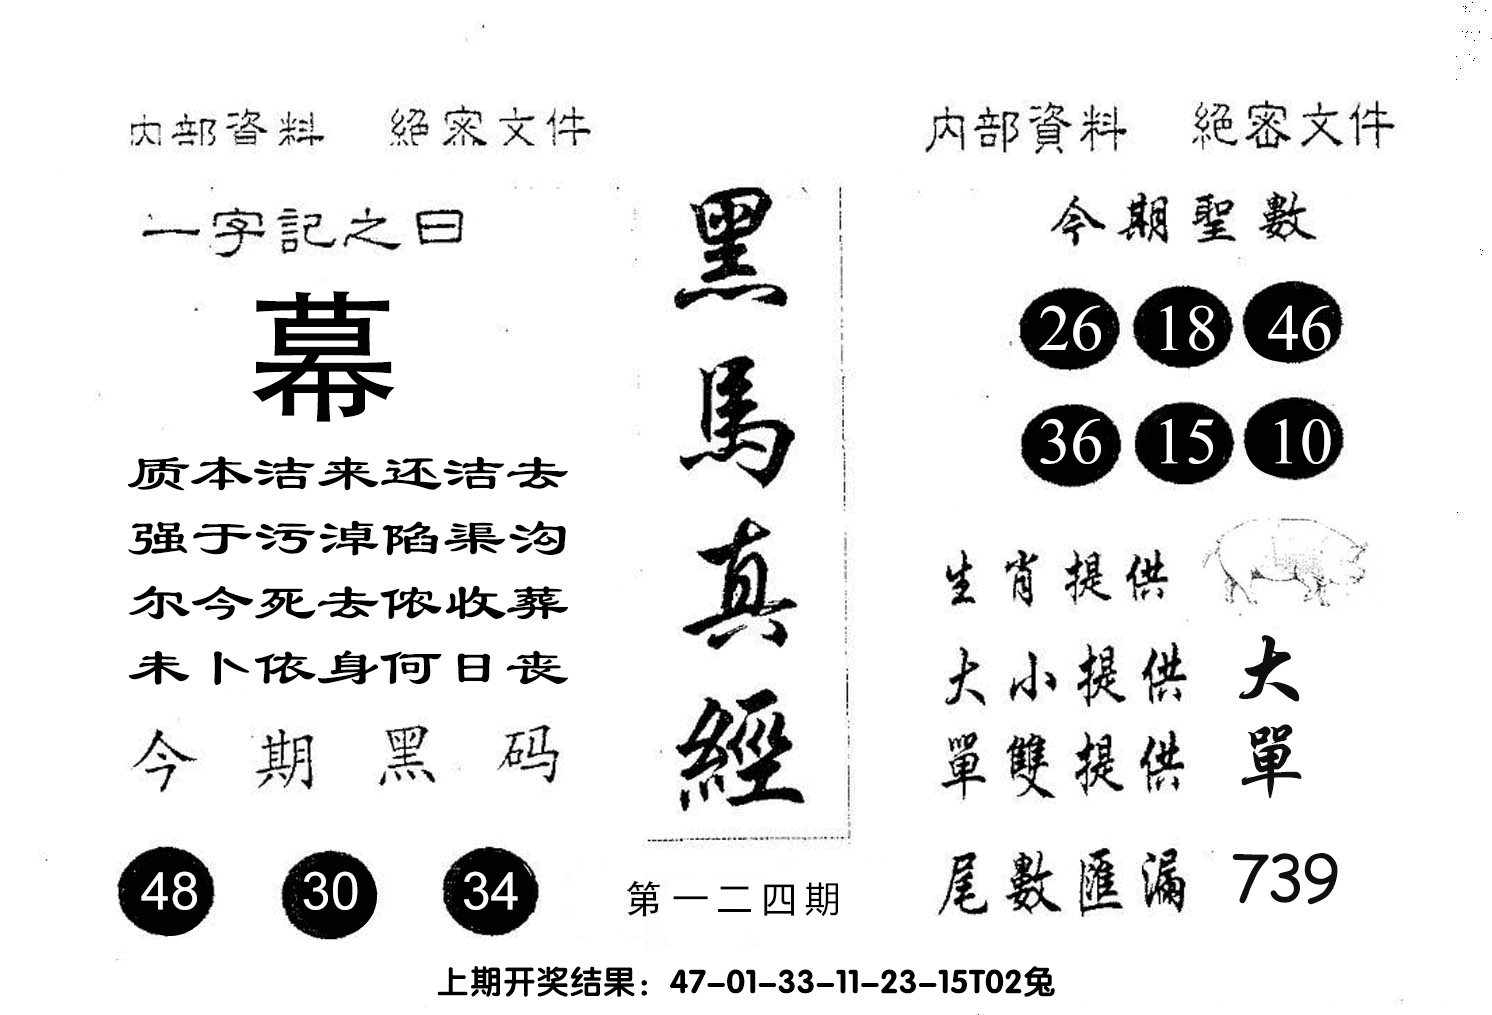 内部資料 絕密文件
一字記之曰
幕
质本洁来还洁去
强于污淖陷渠沟
尔今死去侬收葬
未卜依身何日丧
今期黑码
48 30 34
黑馬真經
第一二四期
内部資料 絕密文件
今期聖數
26 18 46
36 15 10
生肖提供
大小提供 大
單雙提供 單
尾數匯漏 739
上期开奖结果：47-01-33-11-23-15T02兔